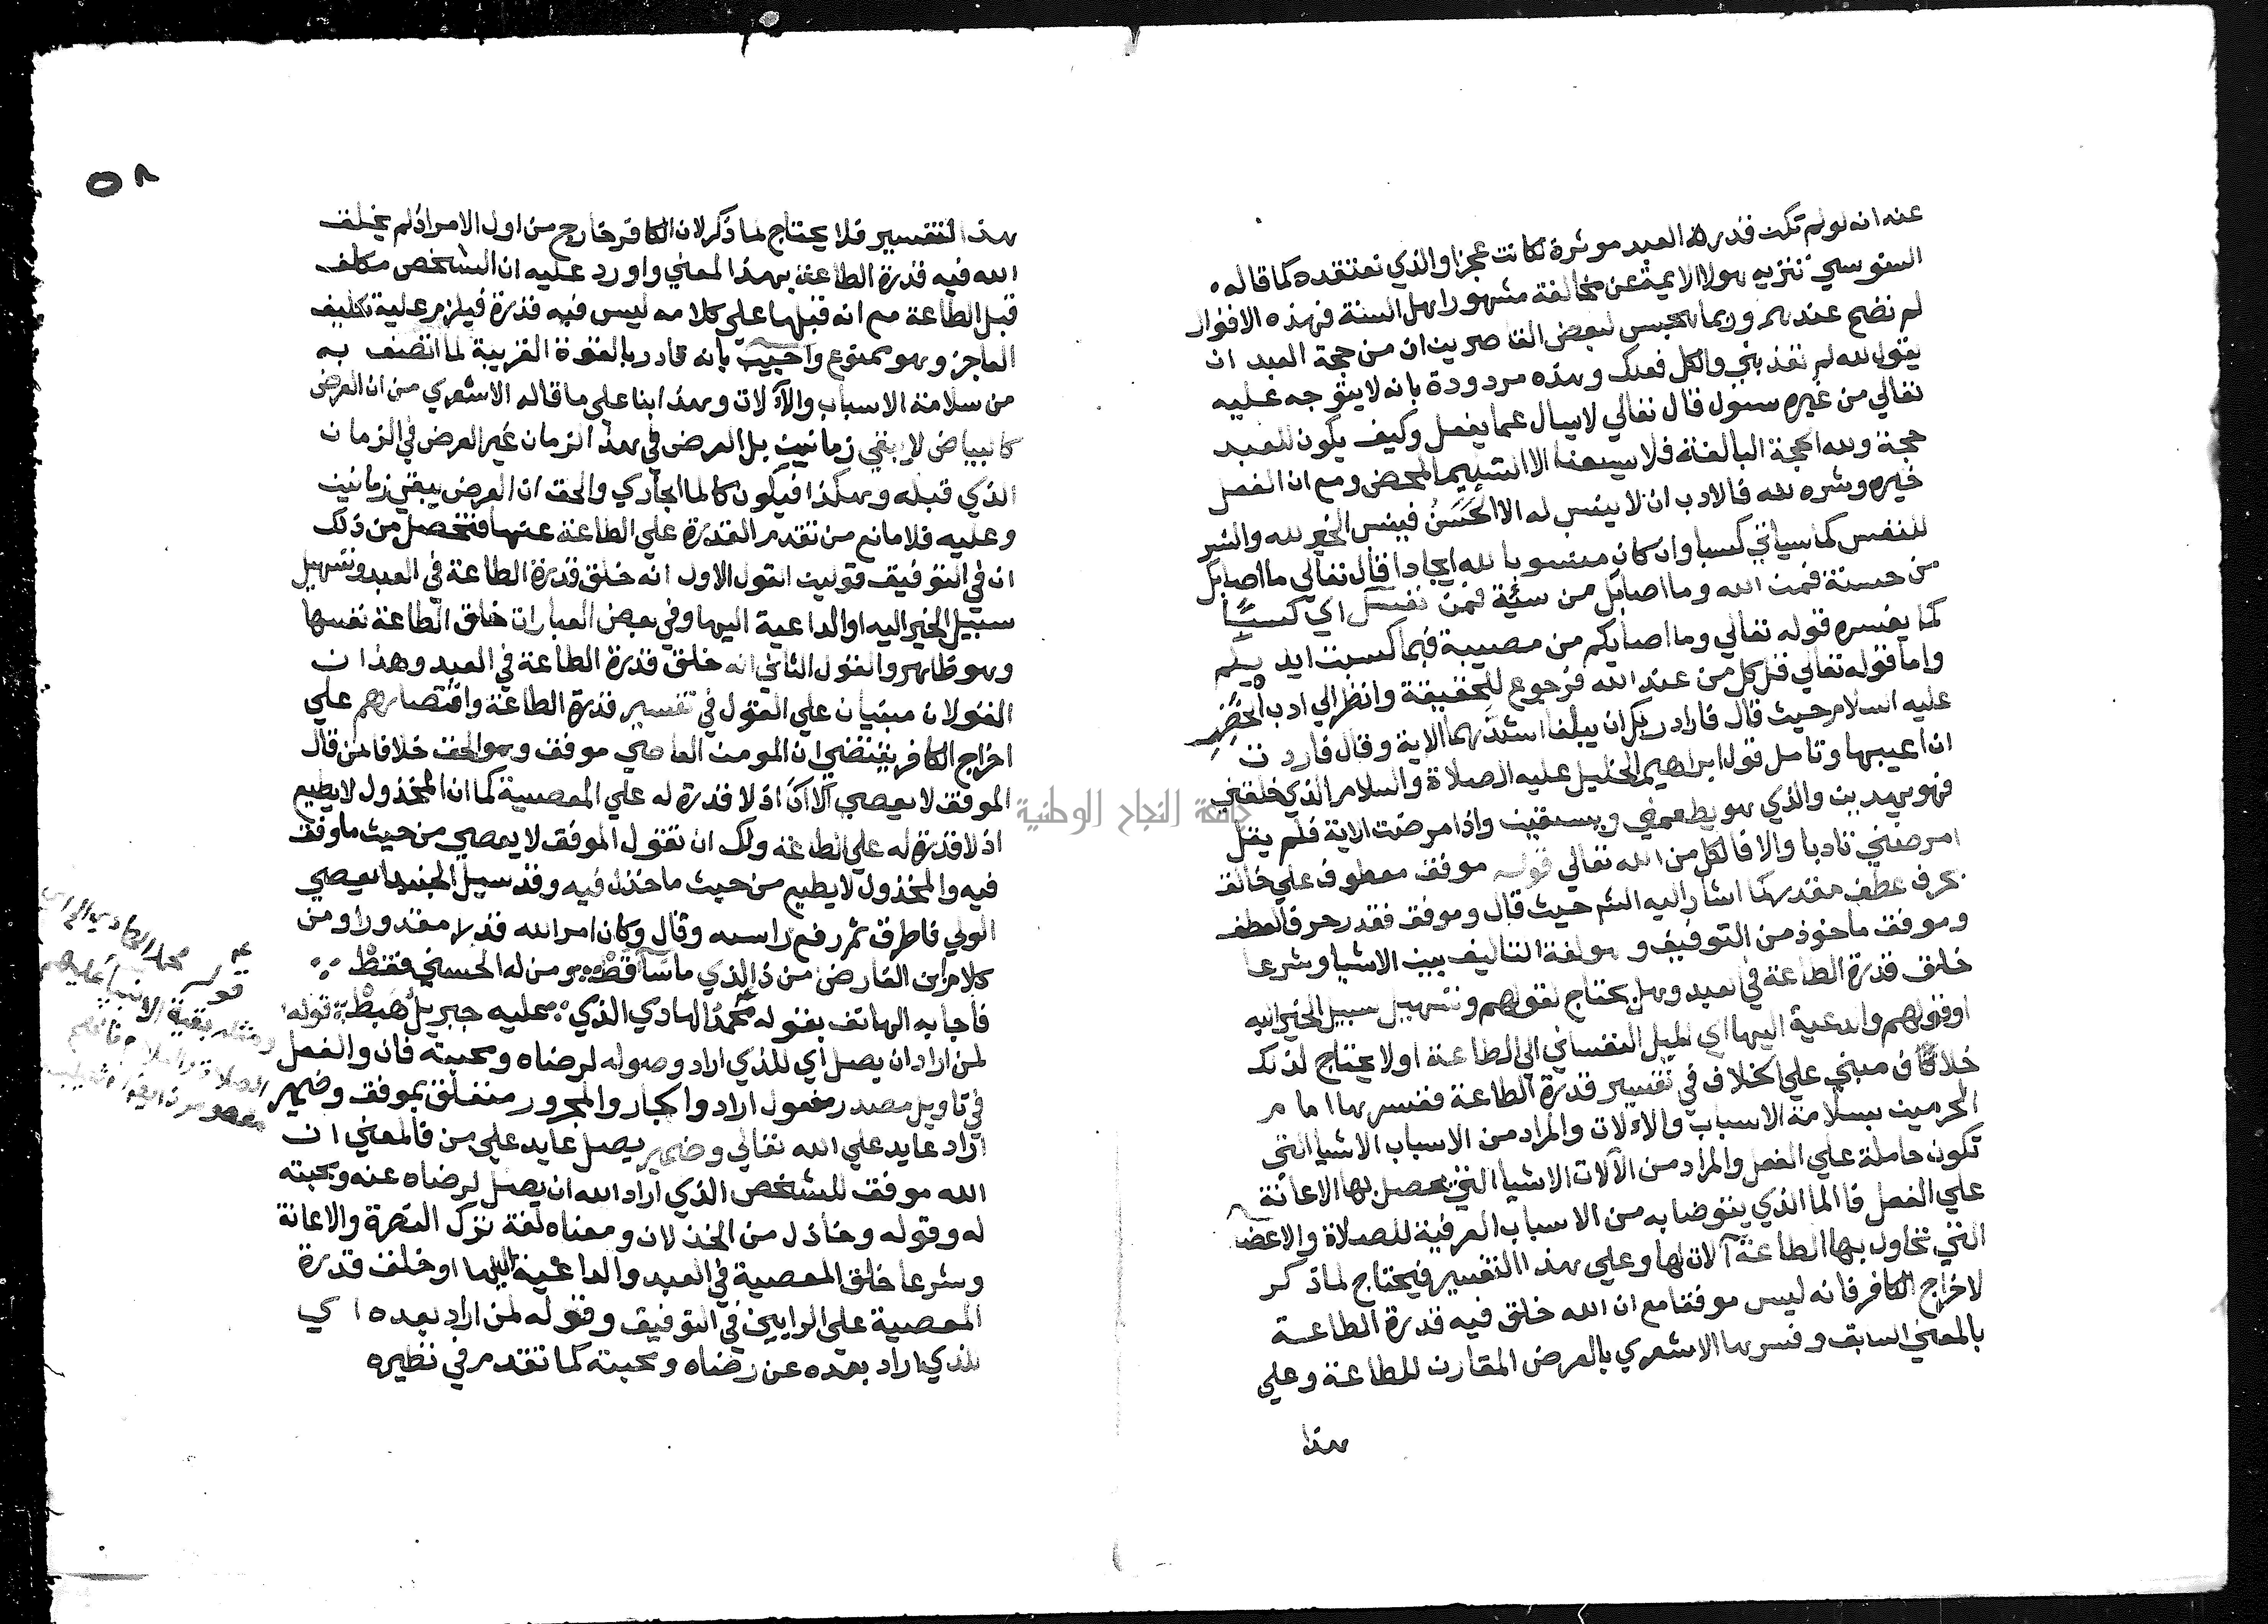 عنه انه لو لم تكن قدرة العبد موثرة لكانت عجزا والذي نعتقده كما قاله
السنوسي تنزيه هولا الايمة عن مخالفة مشهور اهل السنة فهذه الاقوال
لم تصح عندهم وربما يهجس لبعض القاصرين ان من حجة العبد ان
يقول لله لم تعذبني والكل فعلك وهذه مردودة بانه لا يتوجه عليه
تعالي من غيره سئول قال تعالي لا يسال عما يفعل وكيف يكون للعبد
حجة ولله الحجة البالغة فلا يسعنا الا التسليم المحض ومع ان الفعل
خيره وشره لله فالادب ان لا ينسب له الا الحَسَنُ فينسب الخير لله والشر
للنفس كما سياتي كسبا وان كان منسوبا لله ايجادا قال تعالي ما اصابك
من حسنة فمن الله وما اصابك من سئية فمن نفسك اي كسبًا
كما يفسره قوله تعالي وما اصابكم من مصيبة فبما كسبت ايديكم
واما قوله تعالي قل كل من عند الله فرجوع للحقيقة وانظر الي ادب الخضر
عليه السلام حيث قال فاراد ربك ان يبلغا اشدهما الاية وقال فاردت
ان اعيبها وتامل قول ابراهيم الخليل عليه الصلاة والسلام الذي خلقني
فهو يهدين والذي هو يطعمني ويسقين واذا مرضت الاية فلم يقل
امرضني تادبا والا فالكل من الله تعالي قوله موفق معطوف علي خالق
بحرف عطف مقدر كما اشار اليه الشم حيث قال وموفق فقدر حرف العطف
وموفق ماخوذ من التوفيق وهو لغة التاليف بين الاشيا وشرعا
خلق قدرة الطاعة في العبد وهل يحتاج لقولهم وتسهيل سبيل الخير اليه
او قولهم والداعية اليها اي الميل النفساني الي الطاعة او لا يحتاج لذلك
خلاف مبني علي الخلاف في تفسير قدرة الطاعة ففسرها امام
الحرمين بسلامة الاسباب والالات والمراد من الاسباب الاشيا التي
تكون حاملة علي الفعل والمراد من الآلات الاشيا التي يحصل بها الاعانة
علي الفعل فالما الذي يتوضا به من الاسباب العرفية للصلاة والاعضا
التي تحاول بها الطاعة آلات لها وعلي هذا التفسير فيحتاج لما ذكر
لاخراج الكافر فانه ليس موفقا مع ان الله خلق فيه قدرة الطاعة
بالمعني السابق وفسرها الاشعري بالعرض المقارن للطاعة وعلي
هذا
٥٨
هذا التفسير فلا يحتاج لما ذكر لان الكافر خارج من اول الامر اذ لم يخلق
الله فيه قدرة الطاعة بهذا المعني واورد عليه ان الشخص مكلف
قبل الطاعة مع انه قبلها علي كلامه ليس فيه قدرة فيلزم عليه تكليف
العاجز وهو ممنوع واجيب بانه قادر بالقوة القريبة لما اتصف به
من سلامة الاسباب والآلات وهذا بنا علي ما قاله الاشعري من ان العرض
كالبياض لا يبقي زمانين بل العرض في هذا الزمان غير العرض في الزمان
الذي قبله وهكذا فيكون كالما الجاري والحق ان العرض يبقي زمانين
وعليه فلا مانع من تقدم القدرة علي الطاعة عنها فتحصل من ذلك
ان في التوفيق قولين القول الاول انه خلق قدرة الطاعة في العبد وتسهيل
سبيل الخير اليه او الداعية اليها وفي بعض العبارات خلق الطاعة نفسها
وهو ظاهر والقول الثاني انه خلق قدرة الطاعة في العبد وهذان
القولان مبنيان علي القول في تفسير قدرة الطاعة واقتصارهم علي
اخراج الكافر يقتضي ان المومن العاصي موفق وهو الحق خلافا لمن قال
الموفق لا يعصي اذ لا قدرة له علي المعصية كما ان المخذول لا يطيع
اذ لا قدرة له علي الطاعة ولك ان تقول الموفق لا يعصي من حيث ما وفق
فيه والمخذول لا يطيع من حيث ما خذل فيه وقد سيل الجنيد ايعصي
الولي فاطرق ثم رفع راسه وقال وكان امر الله قدرا مقدورا ومن
كلام ابن الفارض من ذا الذي ما سآ قطْ ومن له الحسني فقطْ
فاجابه الهاتف بقوله محمدُ الهادي الذي عليه جبريلُ هبطْ قوله
لمن اراد ان يصل أي للذي اراد وصوله لرضاه ومحبته فان والفعل
في تاويل مصدر مفعول اراد والجار والمجرور متعلق بموفق وضمير
اراد عايد علي الله تعالي وضمير يصل عايد علي من فالمعني ان
الله موفق للشخص الذي اراد الله ان يصل لرضاه عنه ومحبته
له وقوله وخاذل من الخذلان ومعناه لغة ترك النصرة والاعانة
وشرعا خلق المعصية في العبد والداعية اليها او خلق قدرة
المعصية علي الرايين في التوفيق وقوله لمن اراد بعده اي
للذي اراد بعده عن رضاه ومحبته كما تقدم في نظيره
قوله محمد الهادي الي اخره
ومثله بقية الانبيا عليهم
الصلاة والسلام فانهم
جامعة النجاح الوطنية